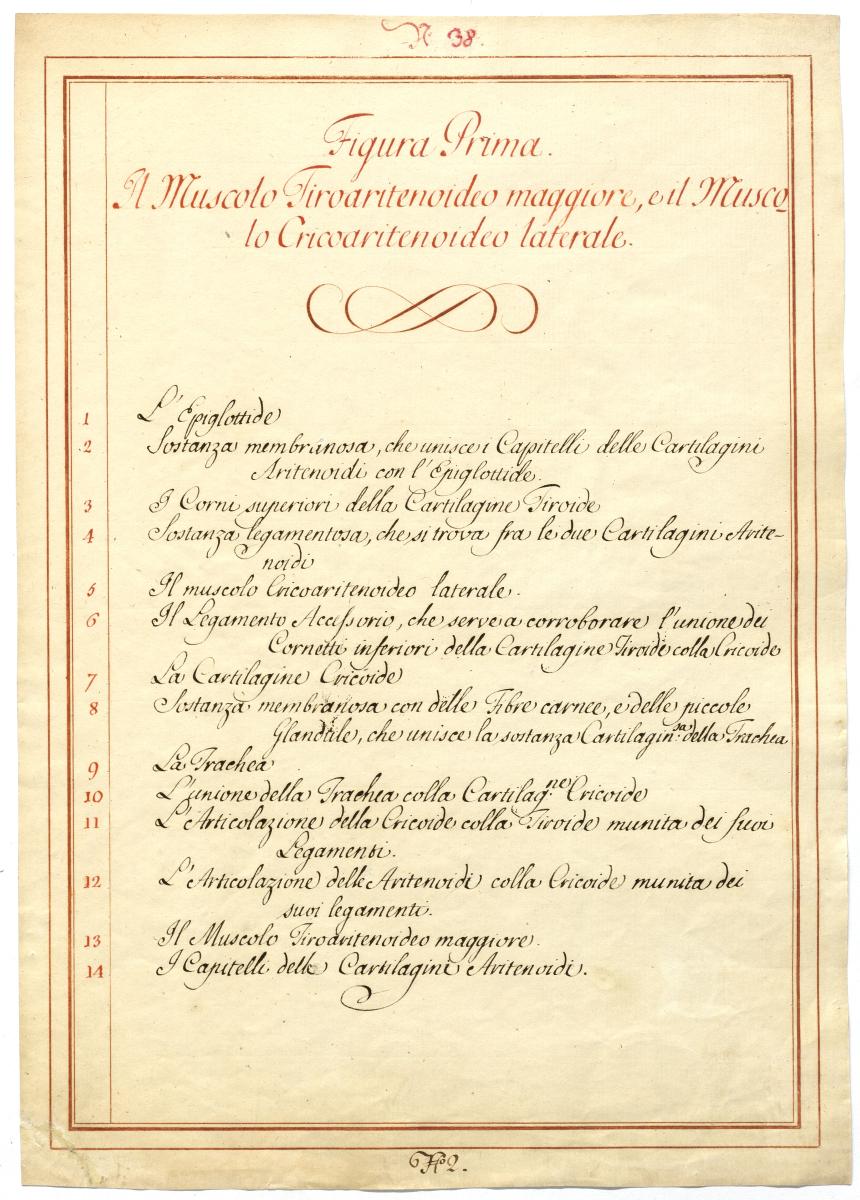 N. 38.
Figura Prima.
Il Muscolo Tiroaritenoideo maggiore, e il Musco-
lo Cricoaritenoideo laterale.
1 L'Epiglottide
2 Sostanza membranosa, che unisce i Capitelli delle Cartilagini
Aritenoidi con l'Epiglottide.
3 I Corni superiori della Cartilagine Tiroide
4 Sostanza legamentosa, che si trova fra le due Cartilagini Arite-
noidi
5 Il muscolo Cricoaritenoideo laterale.
6 Il Legamento Accessorio, che serve a corroborare l'unione dei
Cornetti inferiori della Cartilagine Tiroide colla Cricoide
7 La Cartilagine Cricoide
8 Sostanza membranosa con delle Fibre carnee, e delle piccole
Glandule, che unisce la sostanza Cartilagin.sa della Trachea
9 La Trachea
10 L'unione della Trachea colla Cartilag.ne Cricoide
11 L'Articolazione della Cricoide colla Tiroide munita dei suoi
Legamenti.
12 L'Articolazione delle Aritenoidi colla Cricoide munita dei
suoi legamenti.
13 Il Muscolo Tiroaritenoideo maggiore.
14 I Capitelli delle Cartilagini Aritenoidi.
2.